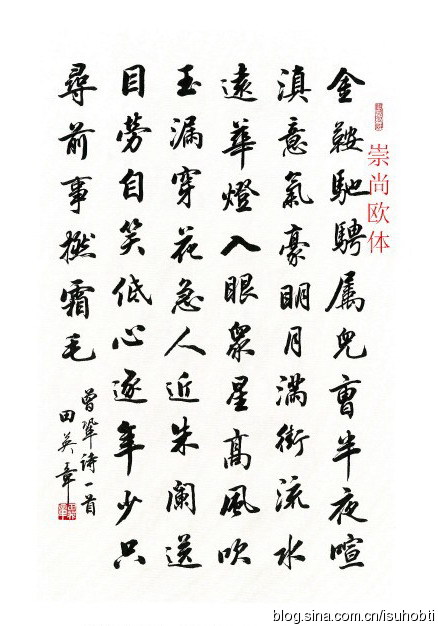 金鞍馳騁屬兒曹半夜喧
滇意氣豪明月滿街流水
遠華燈入眼眾星高風吹
玉漏穿花急人近朱阑送
目勞自笑低心逐年少只
尋前事撚霜毛
曾鞏诗一首
田英章
崇尚欧体
blog.sina.com.cn/isuhobti